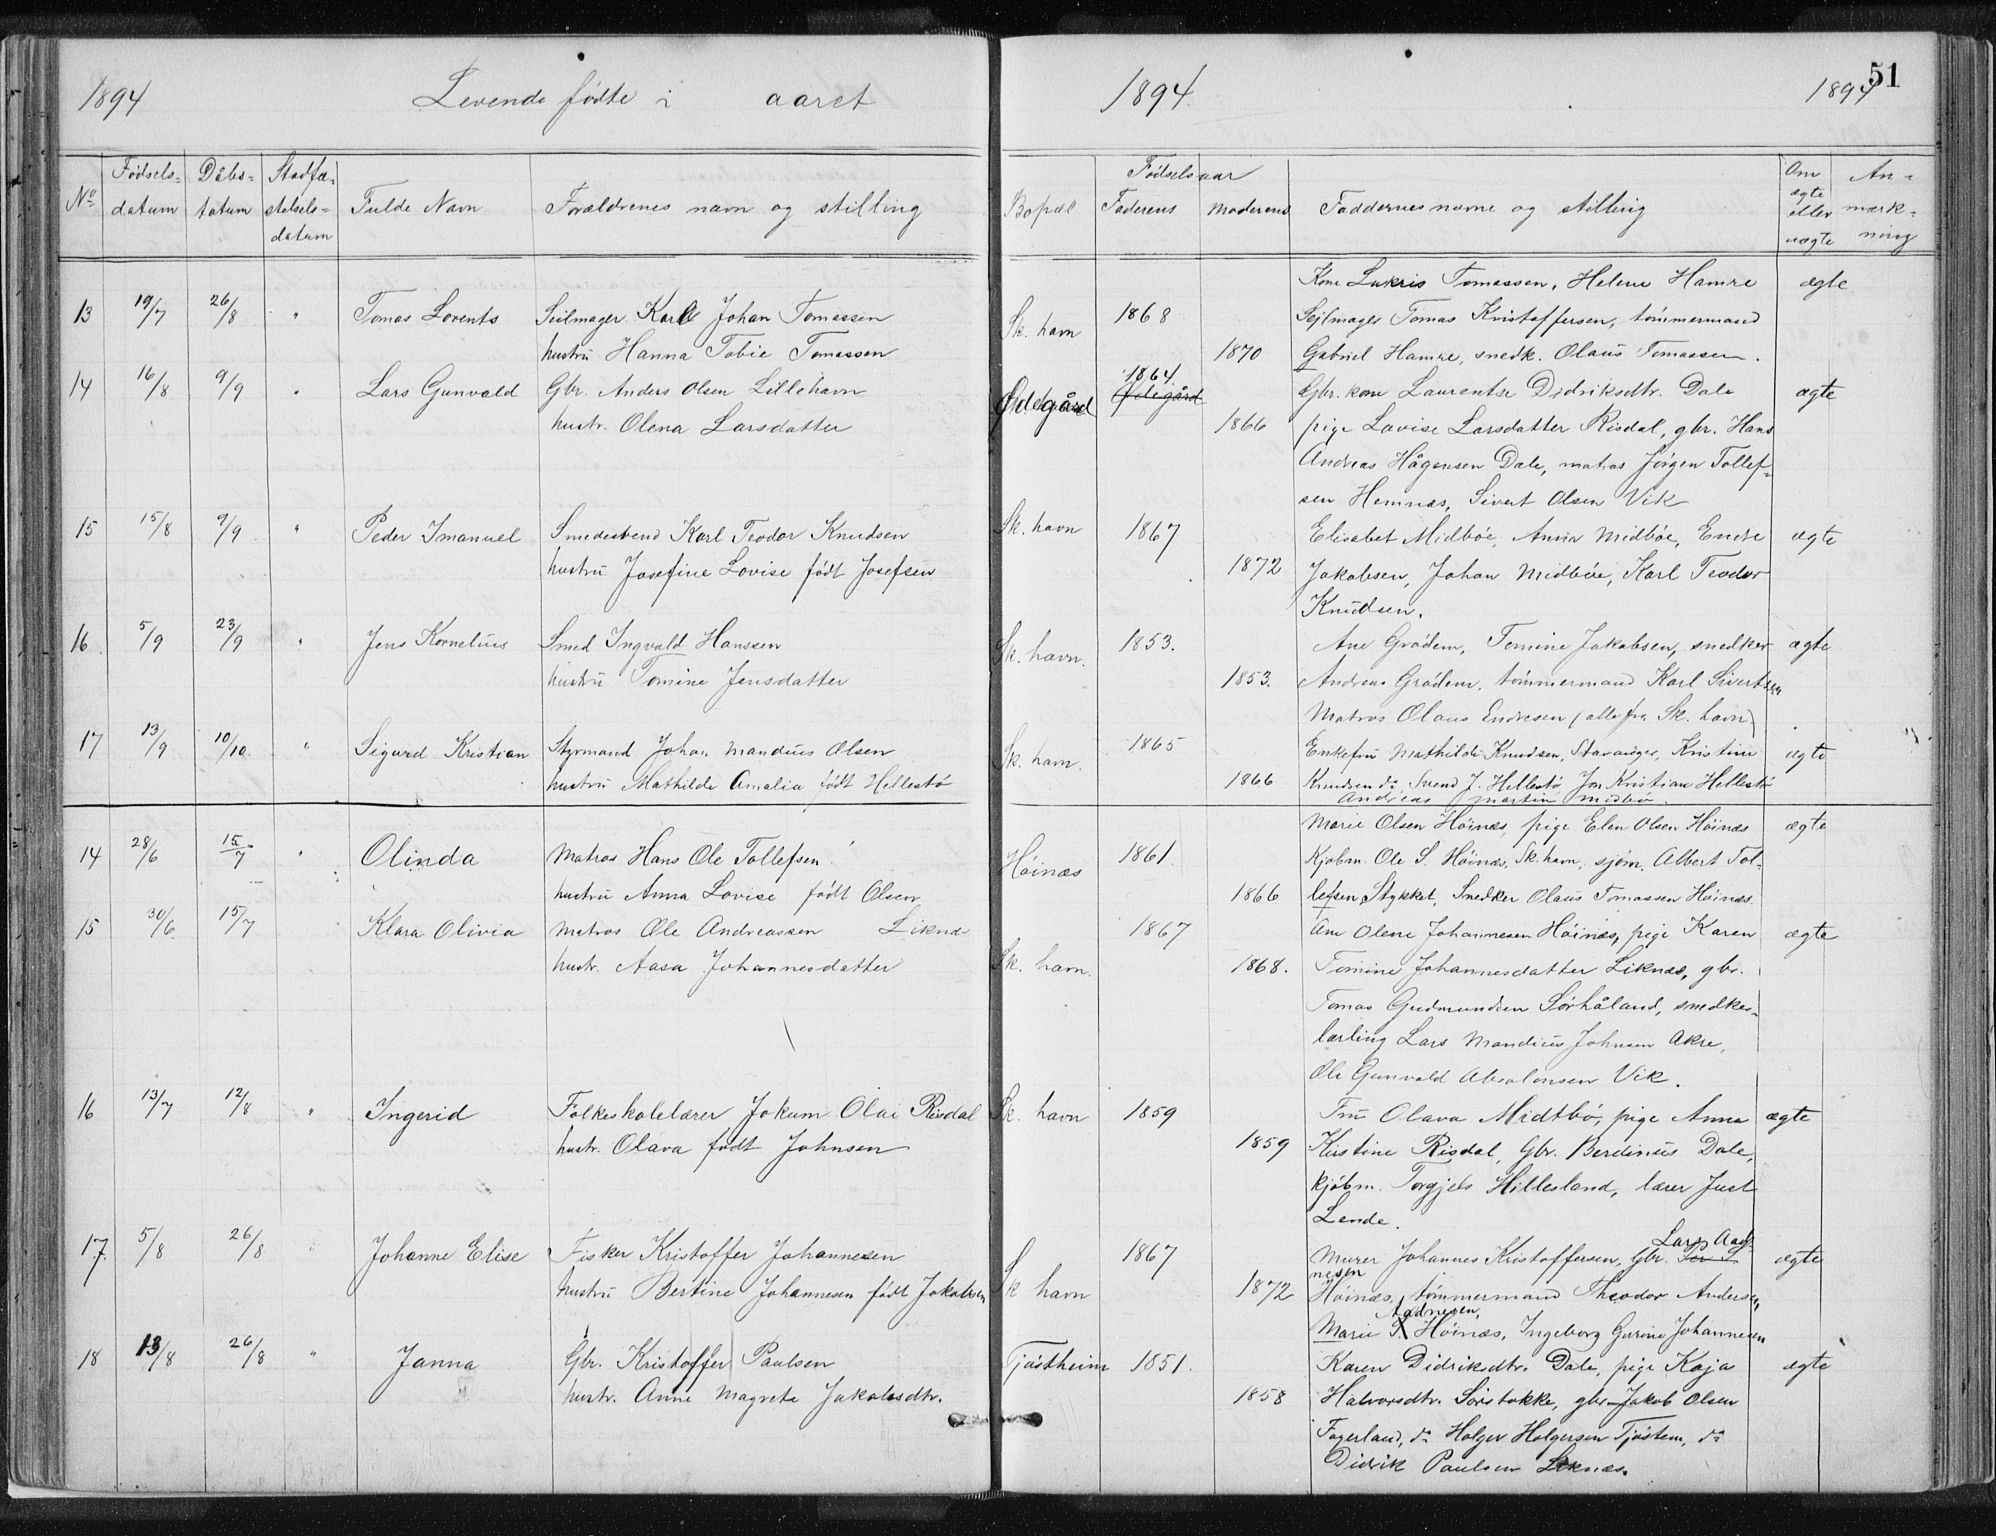 1894 Levende fødte i aaret 1894. 1894 51
No Fødsels-datum Dåbs-datum Stadfæ-stelsels-datum Fulde Navn Forældrenes navn og stilling Bopæl Fødselsaar Faderens Moderens Faddernes navne og stilling Om ægte eller uægte An-mærk-ning
Kone Lukris Tomassen, Helene Hamre ægte
13 19/7 26/8 " Tomas Lorents Seilmager Karl Johan Tomassen Sk. havn 1868 Sejlmager Tomas Kristoffersen, tømmermand
hustru Hanna Tobie Tomassen 1870 Gabriel Hamre, snedk. Olaus Tomassen.
14 16/8 9/9 " Lars Gunvald Gbr. Anders Olsen Lillehavn Ødegård 1864 Ødegård Gbr. kone Laurentse Didriksdtr. Dale ægte
hustr. Olena Larsdatter 1866 pige Lovise Larsdatter Risdal, gbr. Hans
Andreas Hågensen Dale, matros Jørgen Tollef-
sen Hemnæs, Sivert Olsen Vik
15 15/8 9/9 " Peder Imanuel Smedesvend Karl Teodor Knudsen Sk. havn 1867 Elisabet Midbøe, Anna Midbøe, Endre ægte
hustru Josefine Lovise født Josefsen 1872 Jakobsen, Johan Midbøe, Karl Teodor
Knudsen.
16 5/9 23/9 " Jens Kornelius Smed Ingvald Hanssen Sk. havn. 1853. Ane Grødem, Tomine Jakobsen, snedker ægte
hustru Tomine Jensdatter 1853. Andreas Grødem, tømmermand Karl Sivertsen
Matros Olaus Endresen (alle fra Sk. havn)
17 13/9 10/10 " Sigurd Kristian Styrmand Johan Mandius Olsen Sk. havn. 1865 Enkefru Mathilde Knudsen, Stavanger, Kristine ægte
hustru Mathilde Amalia født Hellestø 1866 Knudsen do Svend J. Hellestø Jon Kristian Hellestø
Andreas Martin Midbø.
Marie Olsen Høinæs, pige Elen Olsen Høinæs ægte
14 28/6 15/7 " Olinda Matros Hans Ole Tollefsen Høinæs 1861. Kjøbm. Ole S. Høinæs, Sk. havn, sjøm. Albert Tol-
hustru Anna Lovise født Olsen 1866 lefsen Stykket, Snedker Olaus Tomassen Høinæs.
15 30/6 15/7 Klara Olivia Matros Ole Andreassen Liknæs 1867 Ane Olene Johannesen Høinæs, pige Karen ægte
hustr. Aasa Johannesdatter Sk. havn. 1868. Tomine Johannesdatter Liknæs, gbr.
Tomas Gudmundsen Sørhåland, snedker-
lærling Lars Mandius Johnsen Akre,
Ole Gunvald Absalonsen Vik.
16 13/7 12/8 " Ingerid Folkeskolelærer Jokum Olai Risdal Sk. havn 1859 Fru Olava Midtbø, pige Anna ægte
hustr. Olava født Johnsen 1859 Kirstine Risdal, Gbr. Berdinus Dale,
kjøbm. Torgjels Hillesland, lærer Just
Lende.
17. 5/8 26/8 " Johanne Elise Fisker Kristoffer Johannesen Sk havn 1867 Murer Johannes Kristoffersen, Gbr. Lars Aad- ægte
nesen
hustru Bertine Johannesen født Jakobsen 1872 Høinæs, tømmermand Theodor Andersen,
Marie Aadnesen, Høinæs, Ingeborg Gurine Johannesen
18 13/8 26/8 " Janna Gbr. Kristoffer Paulsen Tjøstheim 1851. Karen Didriksdtr. Dale, pige Kaja ægte
hustr. Anne Magrete Jakobsdtr. 1858 Halvorsdtr. Sørstokke, gbr. Jakob Olsen
Fagerland, do Holger Holgersen Tjøstem, do
Didrik Paulsen Liknæs.